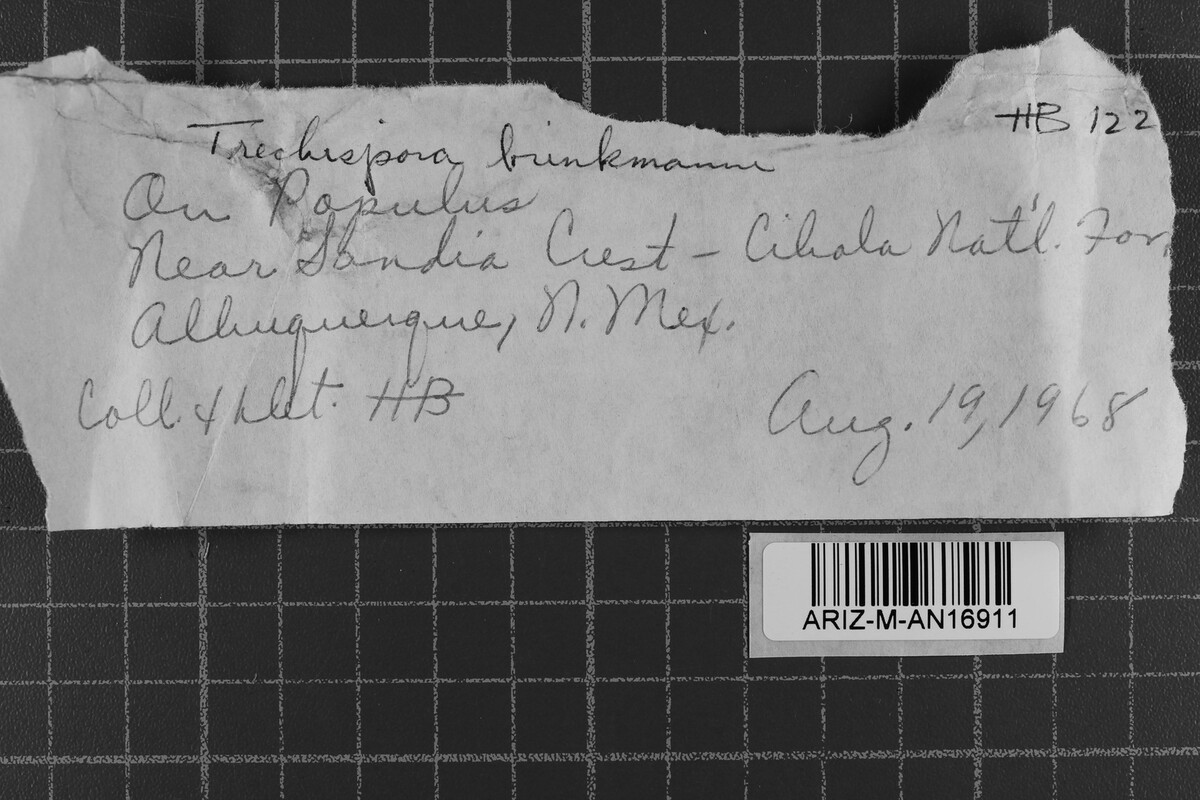 HB 122
Trechispora brinkmanni
On Populus
Near Sandia Crest - Cibola Nat'l. For.
Albuquerque, N. Mex.
Coll. & Det. HB Aug. 19, 1968
ARIZ-M-AN16911